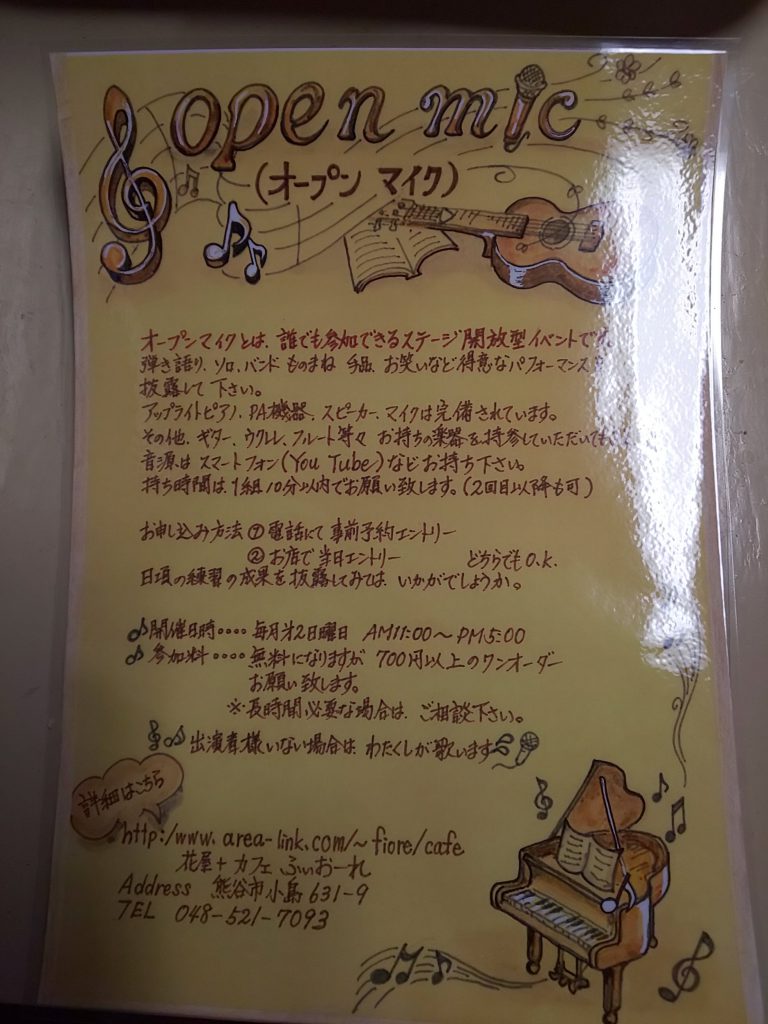 open mic
(オープン マイク)
オープンマイクとは、誰でも参加できるステージ開放型イベントです。
弾き語り、ソロ、バンド ものまね 手品、お笑いなど得意なパフォーマンスを
披露して下さい。
アップライトピアノ、PA機器、スピーカー、マイクは完備されています。
その他、ギター、ウクレレ、フルート等々 お持ちの楽器を持参していただいても
音源は スマートフォン(You Tube)など お持ち下さい。
持ち時間は 1組10分以内でお願い致します。(2回目以降も可)
お申し込み方法 ① 電話にて 事前予約エントリー
② お店で 当日エントリー どちらでもO.K.
日頃の練習の成果を披露してみては、いかがでしょうか。
開催日時・・・・ 毎月第2日曜日 AM11:00～PM5:00
参加料・・・・ 無料になりますが 700円以上のワンオーダー
お願い致します。
※長時間必要な場合は、ご相談下さい。
出演者様いない場合は わたくしが歌います
詳細はこちら
http:/www.area-link.com/~fiore/cafe
花屋+カフェ ふぃおーれ
Address 熊谷市小島631-9
TEL 048-521-7093